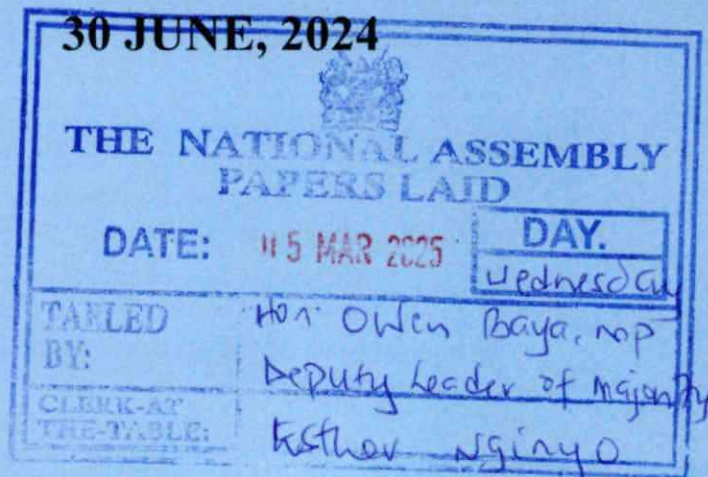 30 JUNE, 2024
THE NATIONAL ASSEMBLY
PAPERS LAID
DATE: 05 MAR 2025
DAY.
Wednesday
TABLED BY:
Hon Owen Baya, MP
Deputy Leader of Majority
CLERK-AT THE-TABLE:
Esther Nginyo